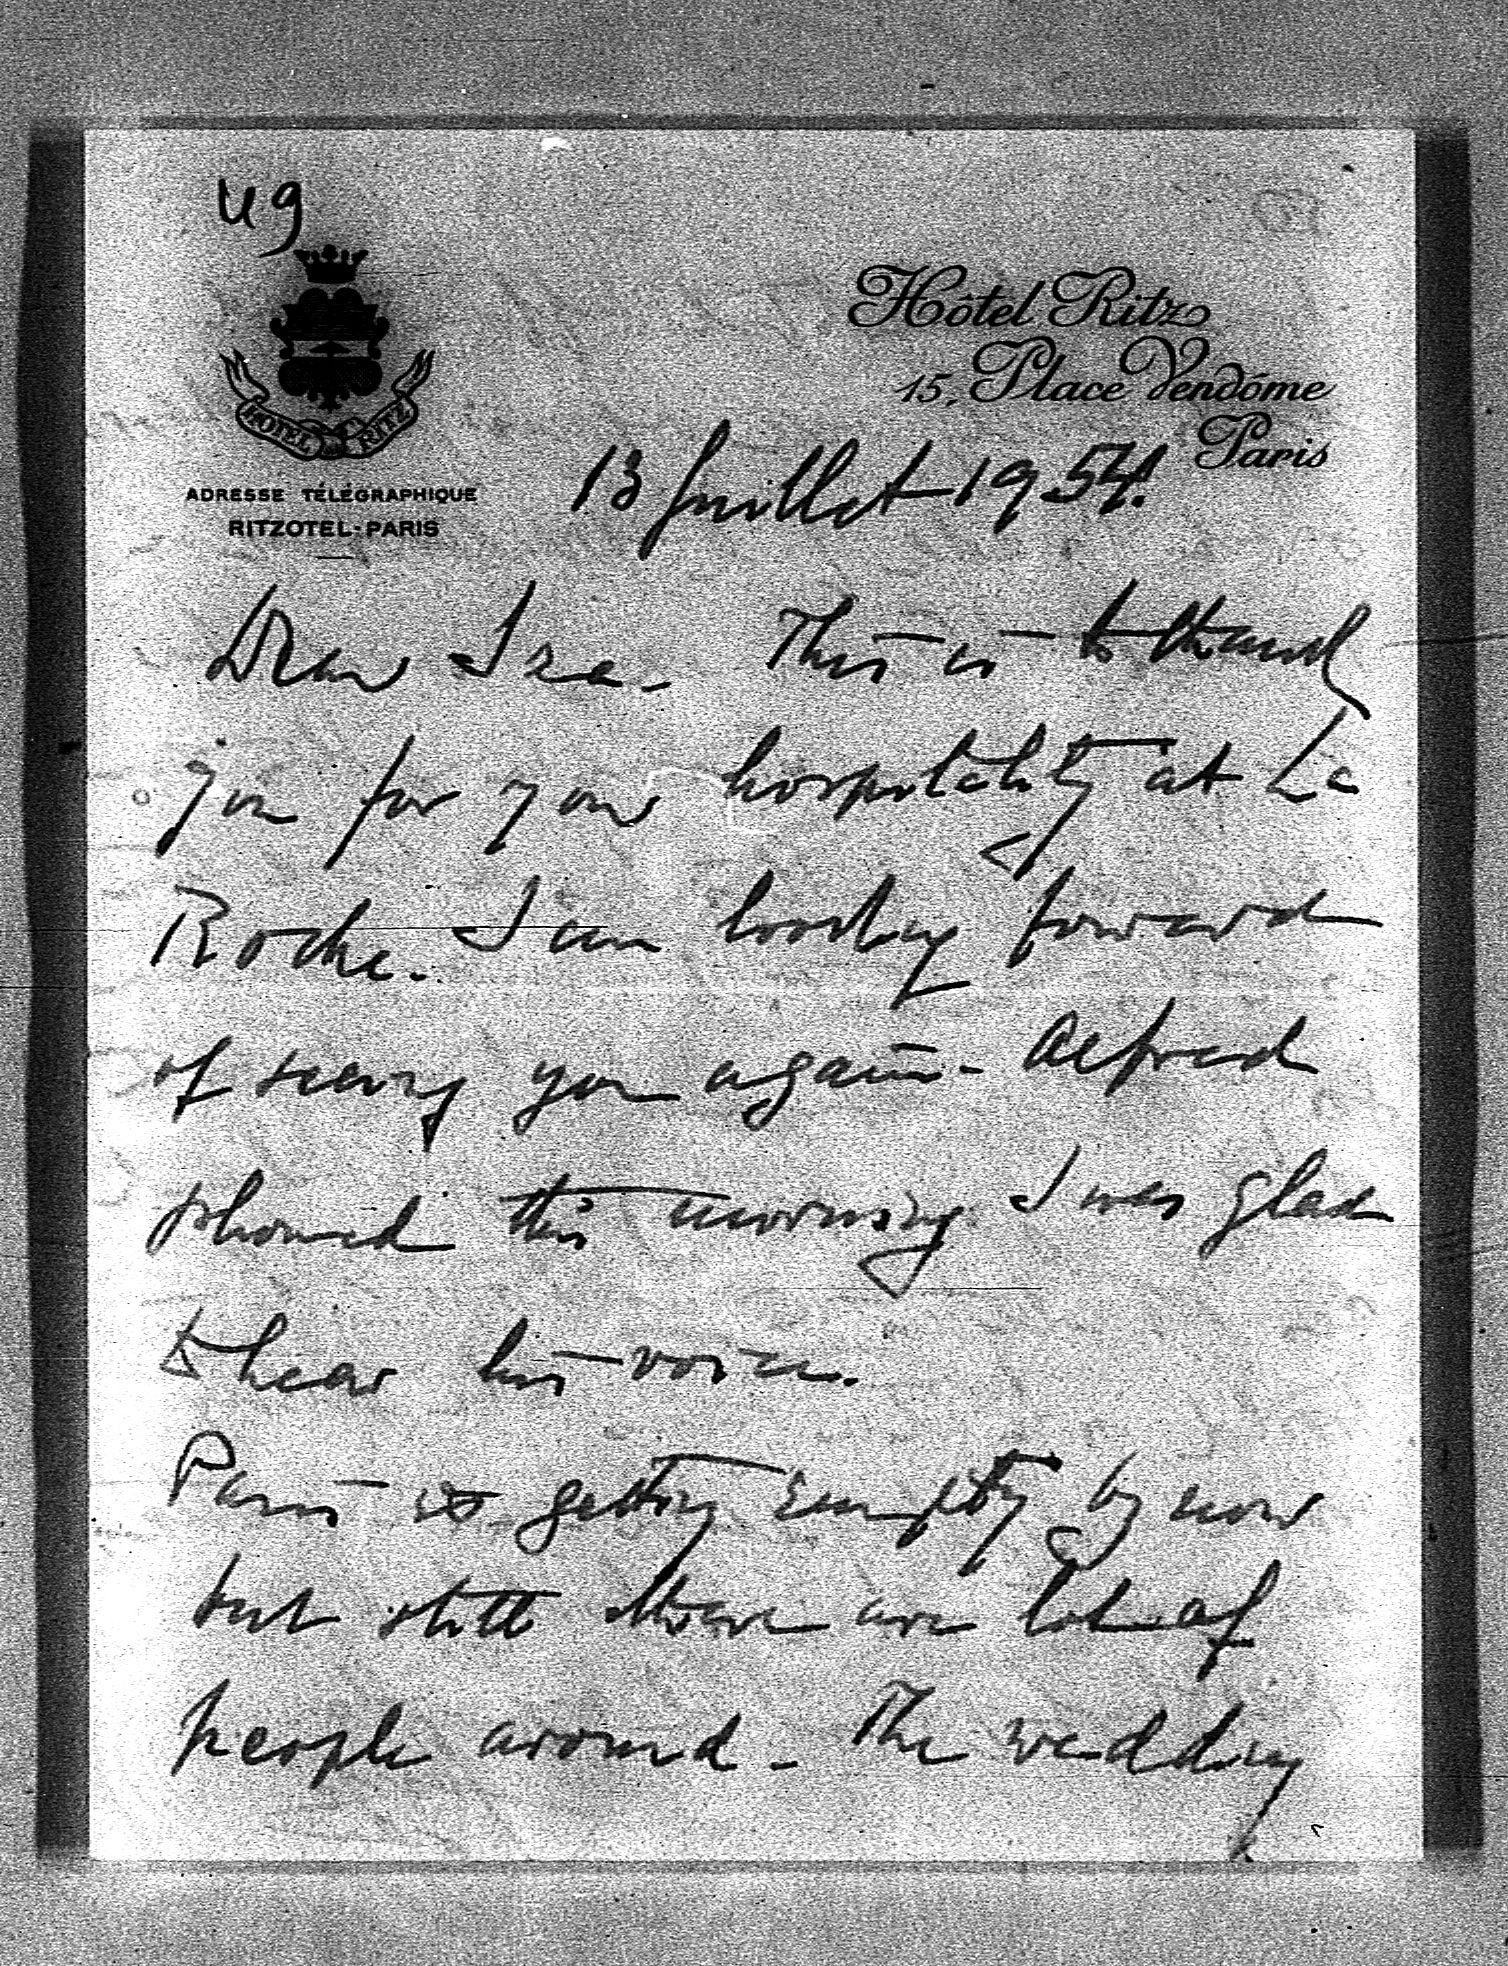 49
Hôtel Ritz
15, Place Vendôme
Paris
HOTEL RITZ
ADRESSE TÉLÉGRAPHIQUE
RITZOTEL-PARIS
13 Juillet 1954.
Dear Ira. This is to thank
you for your hospitality at La
Roche. I am looking forward
of seeing you again. Alfred
phoned this morning I was glad
to hear his voice.
Paris is getting empty by now
but still there are lot of
people around. The wedding